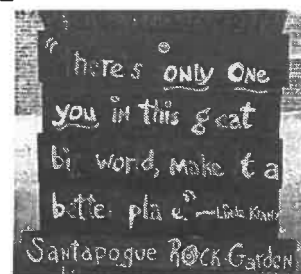 "here's only one
you in this g eat
bi word, make t a
bette pla e."
Santapogue Rock Garden